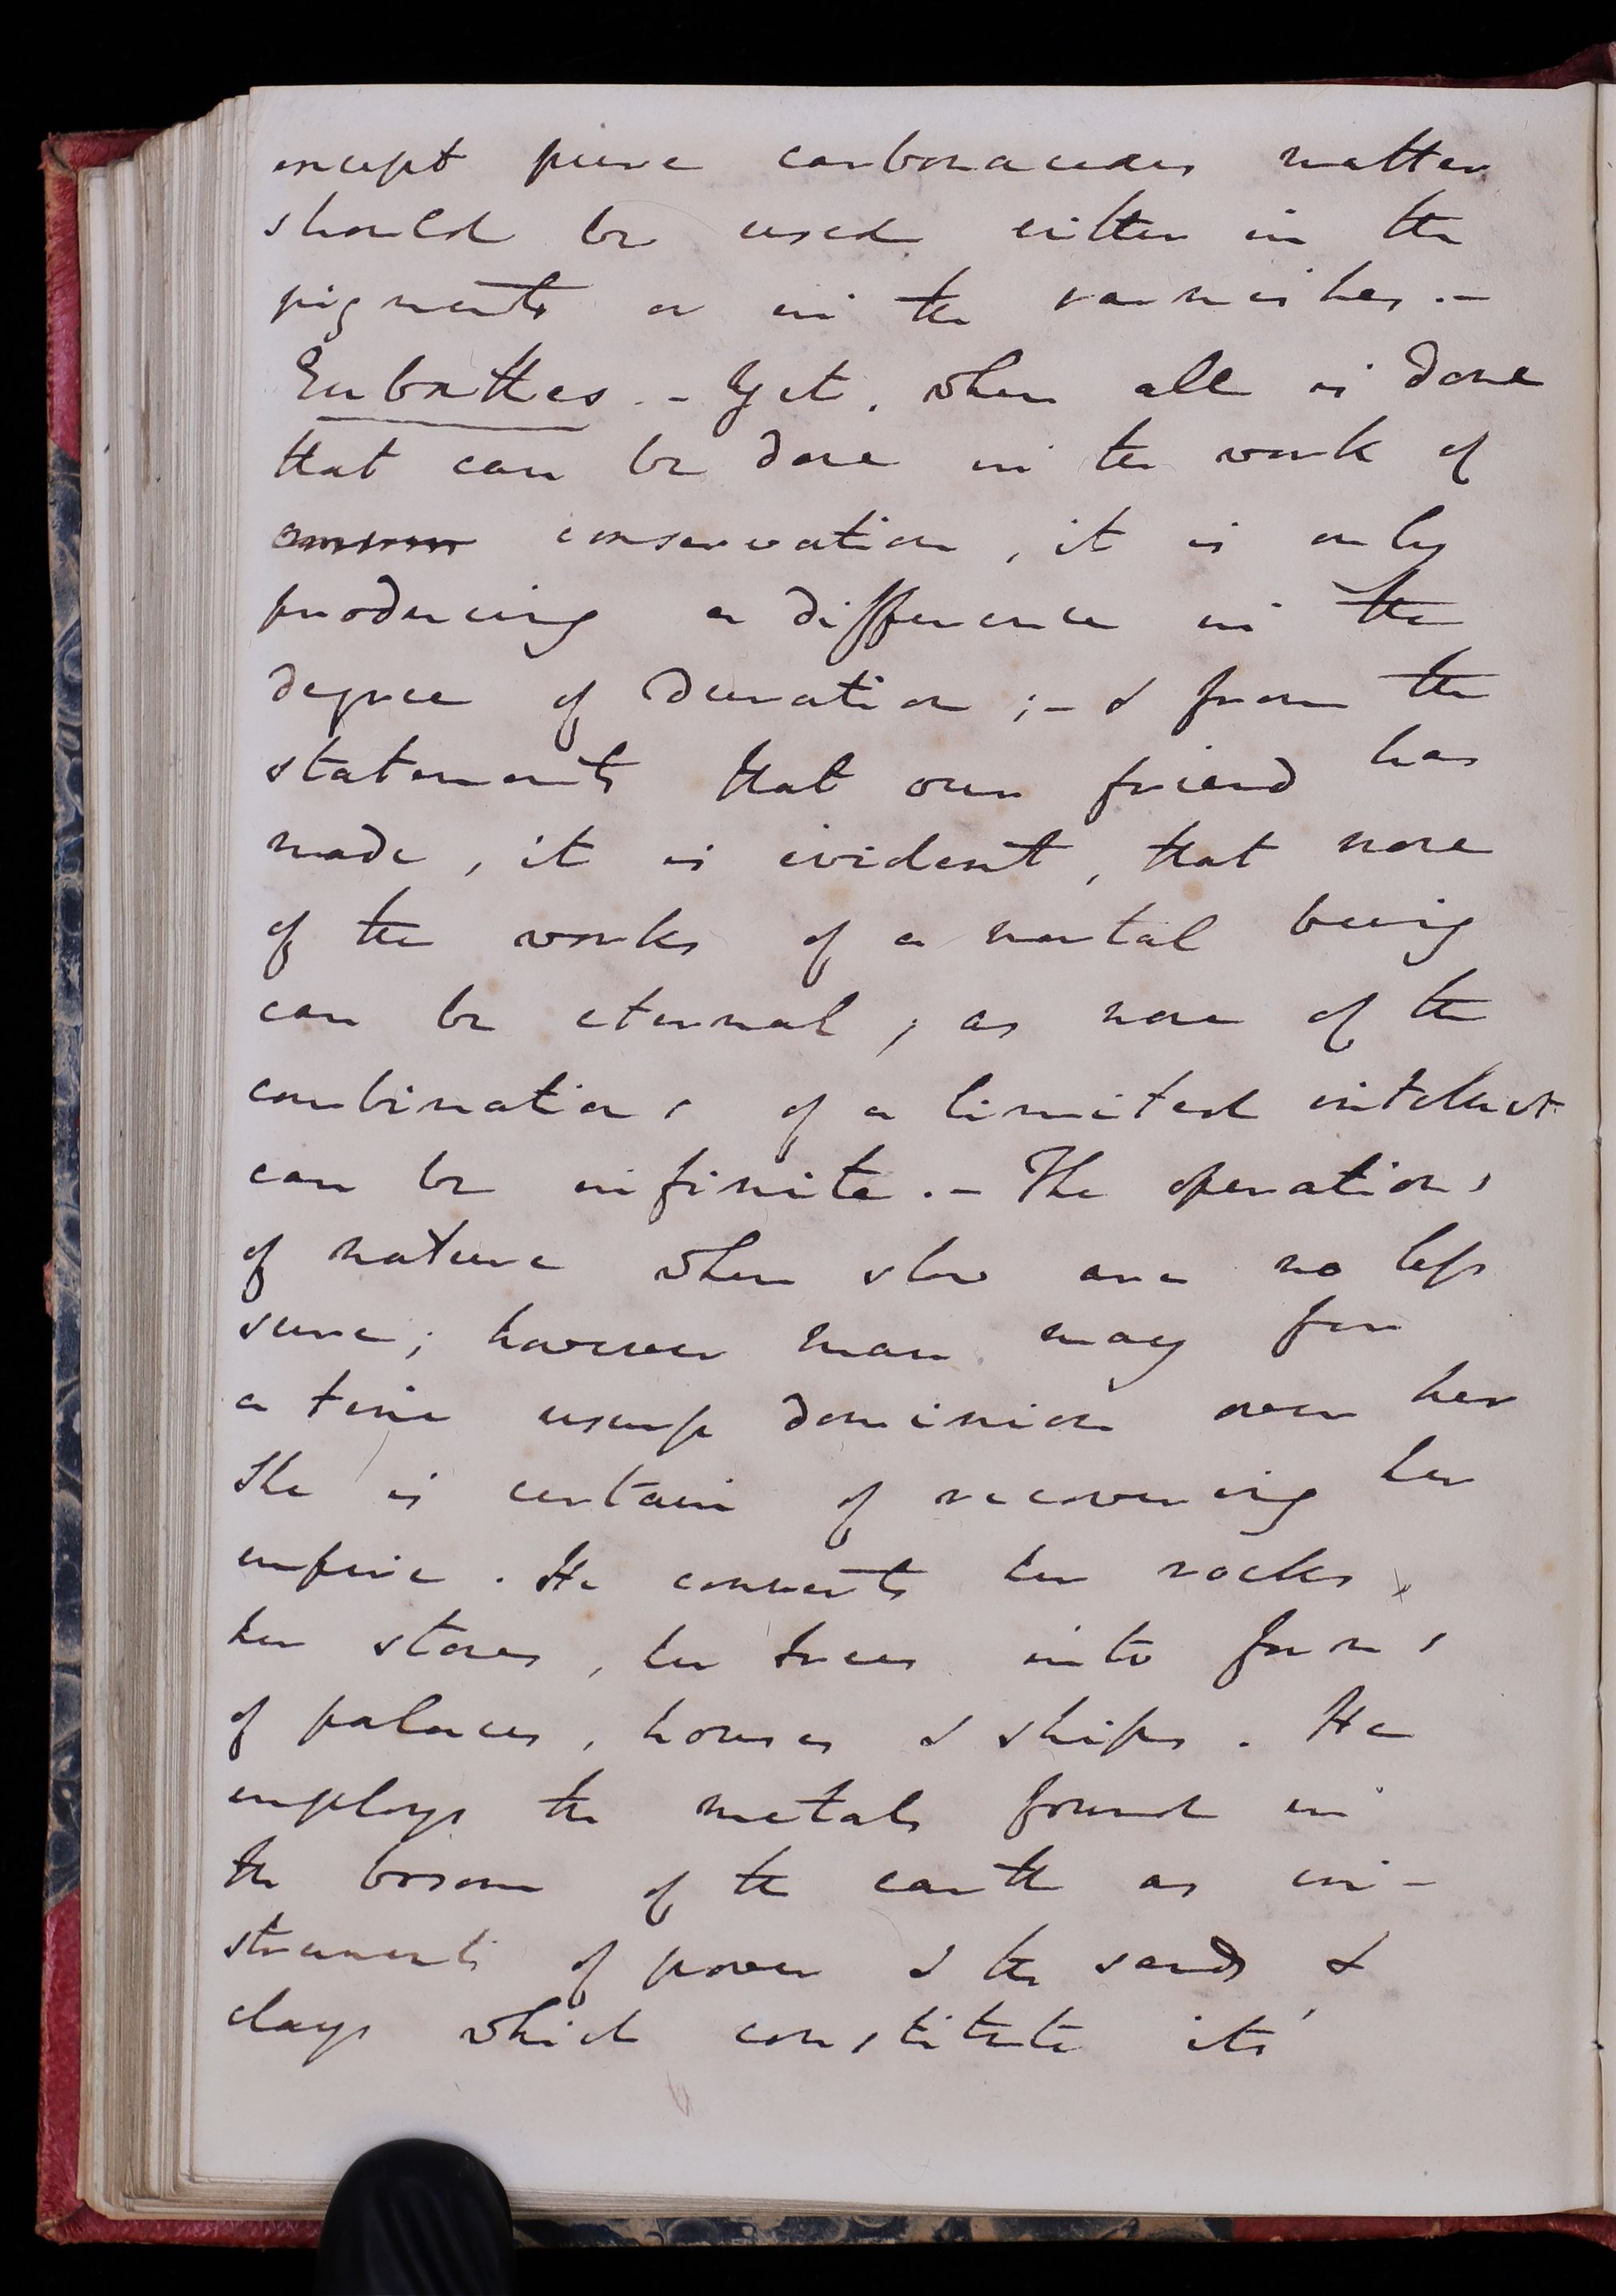 except pure carbonaceous matter
should be used either in the
pigments or in the varnishes.-
Eubathes.- Yet, when all is done
that can be done in the work of
conservation, it is only
producing a difference in the
degree of duration;- & from the
statements that our friend has
made, it is evident, that none
of the works of a mortal being
can be eternal; as none of the
combinations of a limited intellect
can be infinite.- The operations
of nature when slow are no less
sure; however man may for
a time usurp dominion over her
She is certain of recovering her
empire. He converts her rocks,
her stones, her trees into forms
of palaces, houses & ships. He
employs the metals found in
the bosom of the earth as in-
struments of power & the sands &
clays which constitute its